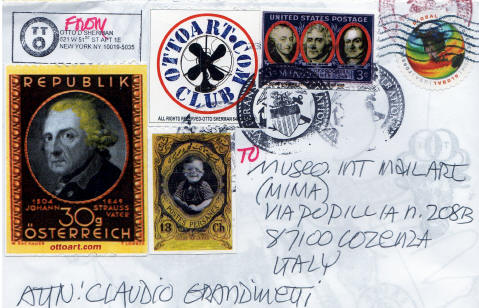 FROM
OTTO D SHERMAN
521 W 51st ST APT 1E
NEW YORK NY 10019-5035
OTTOART.COM
CLUB
ALL RIGHTS RESERVED-OTTO SHERMAN
UNITED STATES POSTAGE
3¢ 3¢
GLOBAL
REPUBLIK
1804 1849
JOHANN STRAUSS
VATER
30g
ÖSTERREICH
ottoart.com
POSTES PERSANES
13 Ch
TO
MUSEO. INT MAIL ART
(MIMA)
VIA POPILLIA n. 208B
87100 COZENZA
ITALY
ATTN: CLAUDIO GRANDINETTI